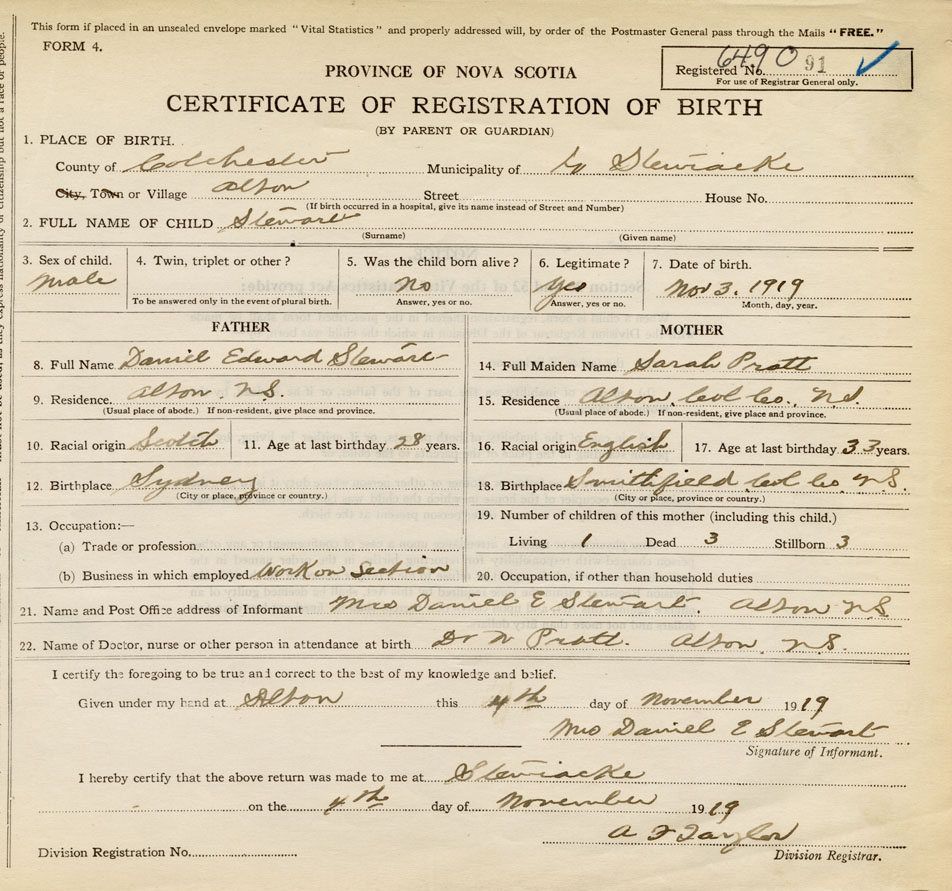 This form if placed in an unsealed envelope marked "Vital Statistics" and properly addressed will, by order of the Postmaster General pass through the Mails "FREE."
FORM 4.
Registered No. 6490 91
For use of Registrar General only.
PROVINCE OF NOVA SCOTIA
CERTIFICATE OF REGISTRATION OF BIRTH
(BY PARENT OR GUARDIAN)
1. PLACE OF BIRTH.
County of Colchester Municipality of Stewiacke
City, Town or Village Alton Street House No.
(If birth occurred in a hospital, give its name instead of Street and Number)
2. FULL NAME OF CHILD Stewart
(Surname) (Given name)
3. Sex of child. 4. Twin, triplet or other ? 5. Was the child born alive ? 6. Legitimate ? 7. Date of birth.
male no yes Nov 3. 1919
To be answered only in the event of plural birth. Answer, yes or no. Answer, yes or no. Month, day, year.
FATHER MOTHER
8. Full Name Daniel Edward Stewart 14. Full Maiden Name Sarah Pratt
9. Residence. Alton. N.S. 15. Residence Alton, Col Co., N.S.
(Usual place of abode.) If non-resident, give place and province. (Usual place of abode.) If non-resident, give place and province.
10. Racial origin Scotch 11. Age at last birthday 28 years. 16. Racial origin English 17. Age at last birthday 33 years.
12. Birthplace Sydney 18. Birthplace Smithfield Col Co N.S.
(City or place, province or country.) (City or place, province or country.)
13. Occupation:— 19. Number of children of this mother (including this child.)
(a) Trade or profession Living 1 Dead 3 Stillborn 3
(b) Business in which employed Work on Section 20. Occupation, if other than household duties
21. Name and Post Office address of Informant Mrs Daniel E Stewart. Alton N.S.
22. Name of Doctor, nurse or other person in attendance at birth Dr Pratt. Alton, N.S.
I certify the foregoing to be true and correct to the best of my knowledge and belief.
Given under my hand at Alton this 4th day of November 1919
Mrs Daniel E Stewart
Signature of Informant.
I hereby certify that the above return was made to me at Stewiacke
on the 4th day of November 1919
A F Taylor
Division Registration No. Division Registrar.